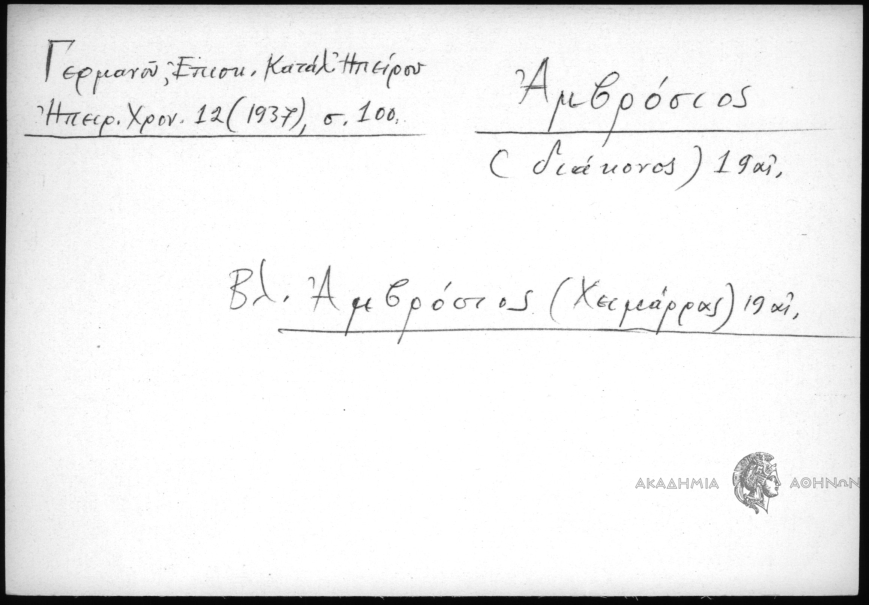 Γερμανοῦ, Ἐπισκ. Κατάλ. Ἠπείρου
Ἠπειρ. Χρον. 12 (1937), σ. 100.
Ἀμβρόσιος
(διάκονος) 19 αἰ.
Βλ. Ἀμβρόσιος (Χειμάρρας) 19 αἰ.
ΑΚΑΔΗΜΙΑ ΑΘΗΝΩΝ